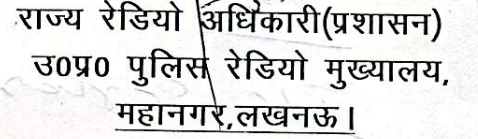 राज्य रेडियो अधिकारी(प्रशासन)
उ0प्र0 पुलिस रेडियो मुख्यालय,
महानगर,लखनऊ।